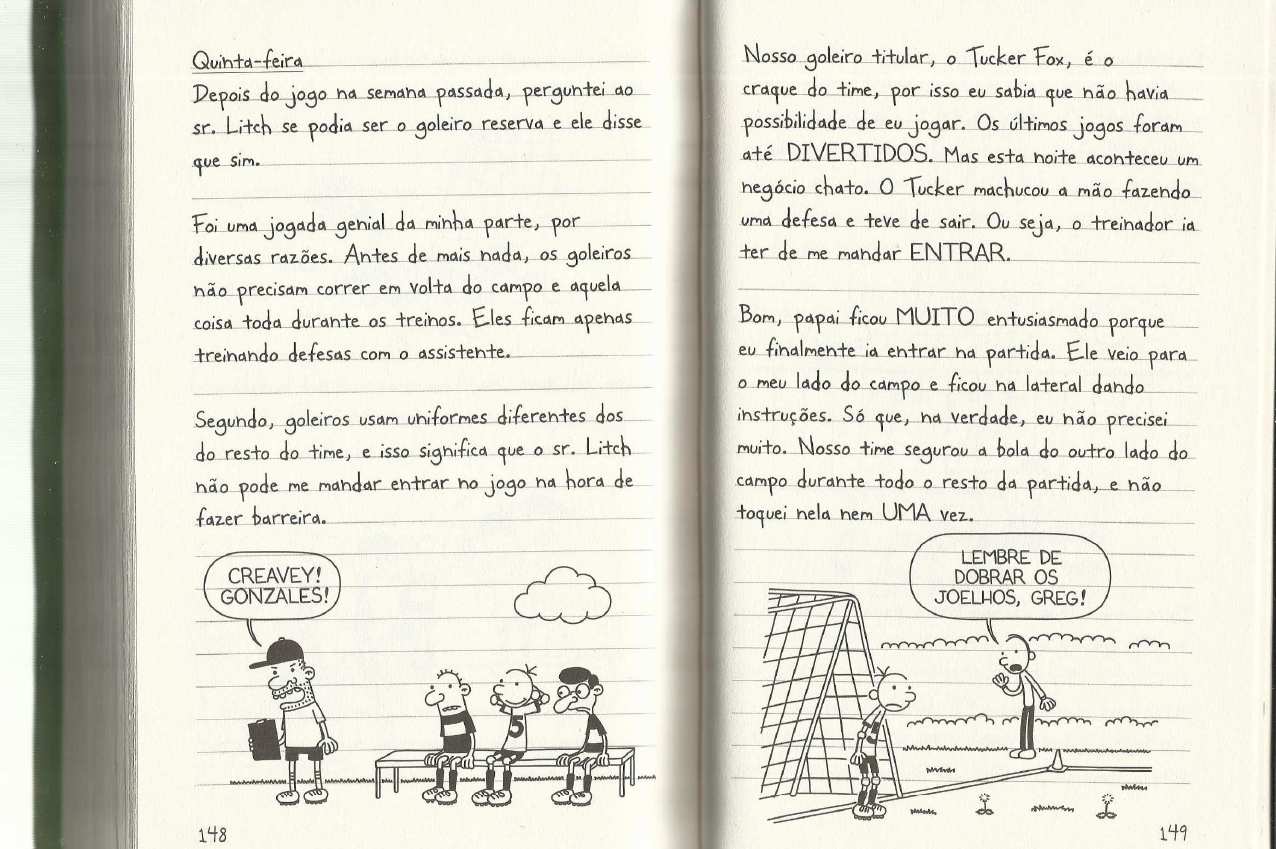 Quinta-feira
Depois do jogo na semana passada, perguntei ao
sr. Litch se podia ser o goleiro reserva e ele disse
que sim.
Foi uma jogada genial da minha parte, por
diversas razões. Antes de mais nada, os goleiros
não precisam correr em volta do campo e aquela
coisa toda durante os treinos. Eles ficam apenas
treinando defesas com o assistente.
Segundo, goleiros usam uniformes diferentes dos
do resto do time, e isso significa que o sr. Litch
não pode me mandar entrar no jogo na hora de
fazer barreira.
CREAVEY!
GONZALES!
5
148
Nosso goleiro titular, o Tucker Fox, é o
craque do time, por isso eu sabia que não havia
possibilidade de eu jogar. Os últimos jogos foram
até DIVERTIDOS. Mas esta noite aconteceu um
negócio chato. O Tucker machucou a mão fazendo
uma defesa e teve de sair. Ou seja, o treinador ia
ter de me mandar ENTRAR.
Bom, papai ficou MUITO entusiasmado porque
eu finalmente ia entrar na partida. Ele veio para
o meu lado do campo e ficou na lateral dando
instruções. Só que, na verdade, eu não precisei
muito. Nosso time segurou a bola do outro lado do
campo durante todo o resto da partida, e não
toquei nela nem UMA vez.
LEMBRE DE
DOBRAR OS
JOELHOS, GREG!
149